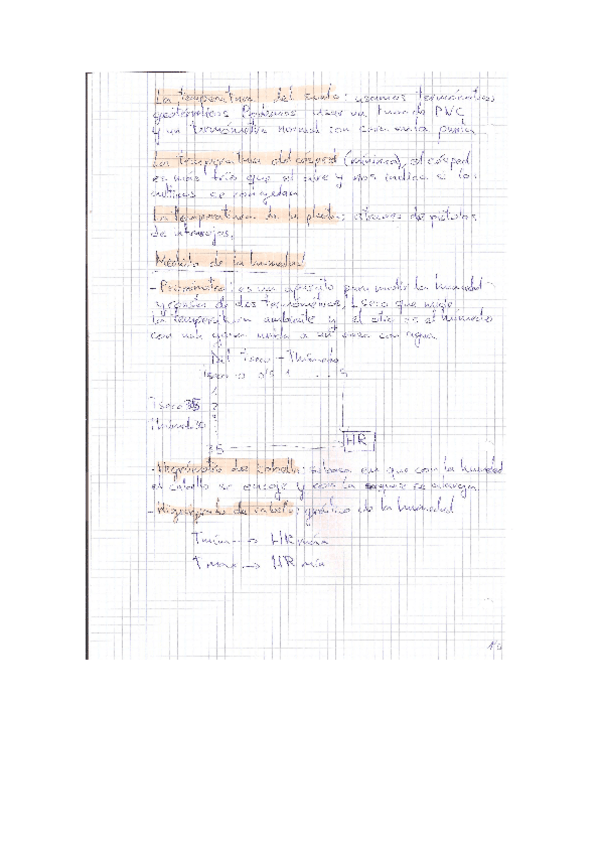 La temperatura del suelo: usamos termómetros
geotérmicos. Podemos usar un tuvo de PVC
y un termómetro normal con cera en la punta
La temperatura del césped (mínima), el césped
es más frío que el aire y nos indica si los
cultivos se congelan
La temperatura de la planta: atraves de pistolas
de infrarojos.
Medida de la humedad
- Psicrómetro: es un aparato para medir la humedad
y consta de dos termómetros, 1 seco que mide
la temperatura ambiente y el otro es el húmedo
con una gasa unida a un vaso con agua.
Dif Tseco - Thúmedo
Tseco 0,5 1 ... 5
1
Tseco 35 2
Húmedo 30
35 HR
- Higrómetro de cabello: se basa en que con la humedad
el cabello se encoge y con la se alarga
- Higrógrafo de cabello: gráfico de la humedad
Tmín -> HR máx
Tmax -> HR mín